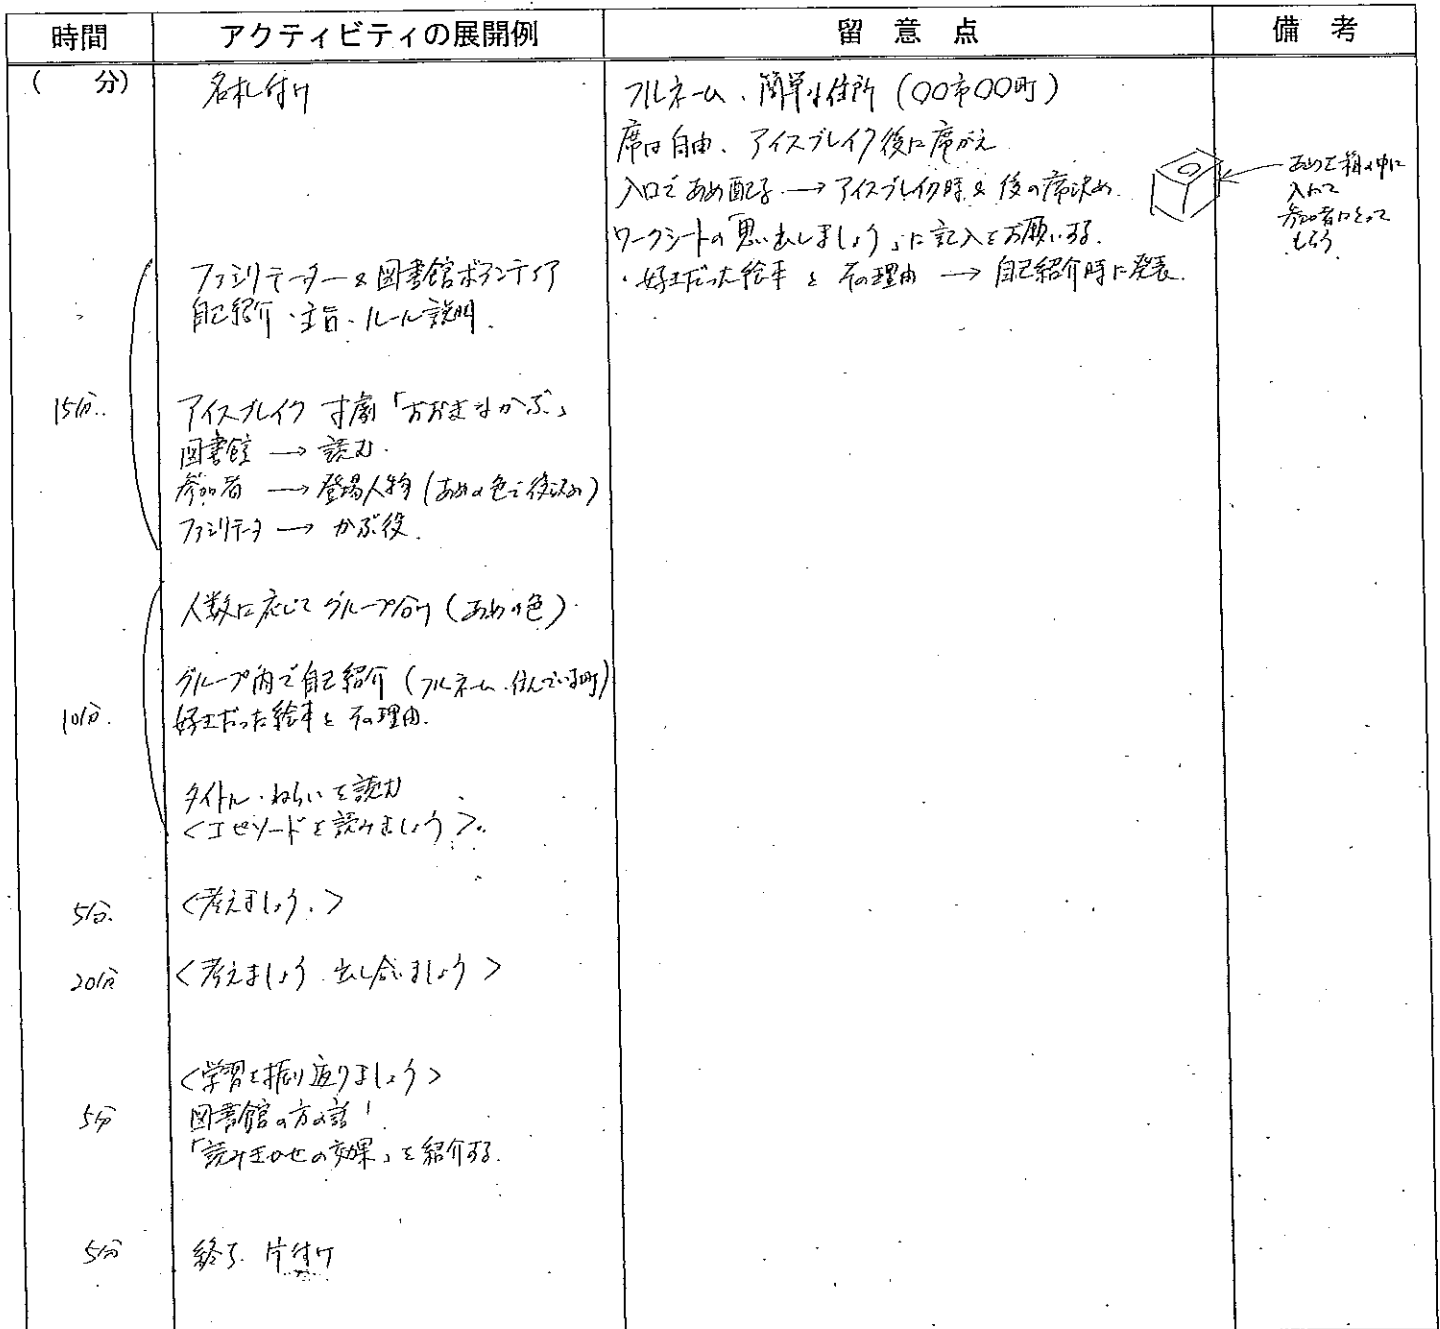 時間
アクティビティの展開例
留意点
備考
( 分)
名札付け
フルネーム、簡単な住所 (〇〇市〇〇町)
席は自由、アイスブレイク後に席がえ
入口であめ配る → アイスブレイク時&後の席決め
ワークシートの「思い出しましょう」に記入をお願いする。
・好きだった絵本とその理由 → 自己紹介時に発表。
あめを箱の中に
入れて
参加者にとって
もらう
ファシリテーター&図書館ボランティア
自己紹介・主旨・ルール説明.
15分.
アイスブレイク 寸劇「おおきなかぶ」
図書館 → 読む.
参加者 → 登場人物 (あめの色で役決め)
ファシリテータ → かぶ役.
人数に応じてグループ分け (あめの色)
グループ内で自己紹介 (フルネーム、住んでいる町)
10分.
好きだった絵本とその理由.
タイトル・ねらいを読む
<エピソードを読みましょう>.
5分.
<考えましょう.>
20分
<考えましょう 出し合いましょう>
<学習を振り返りましょう>
5分
図書館の方の話
「読みきかせの効果」を紹介する.
5分
終了. 片付け